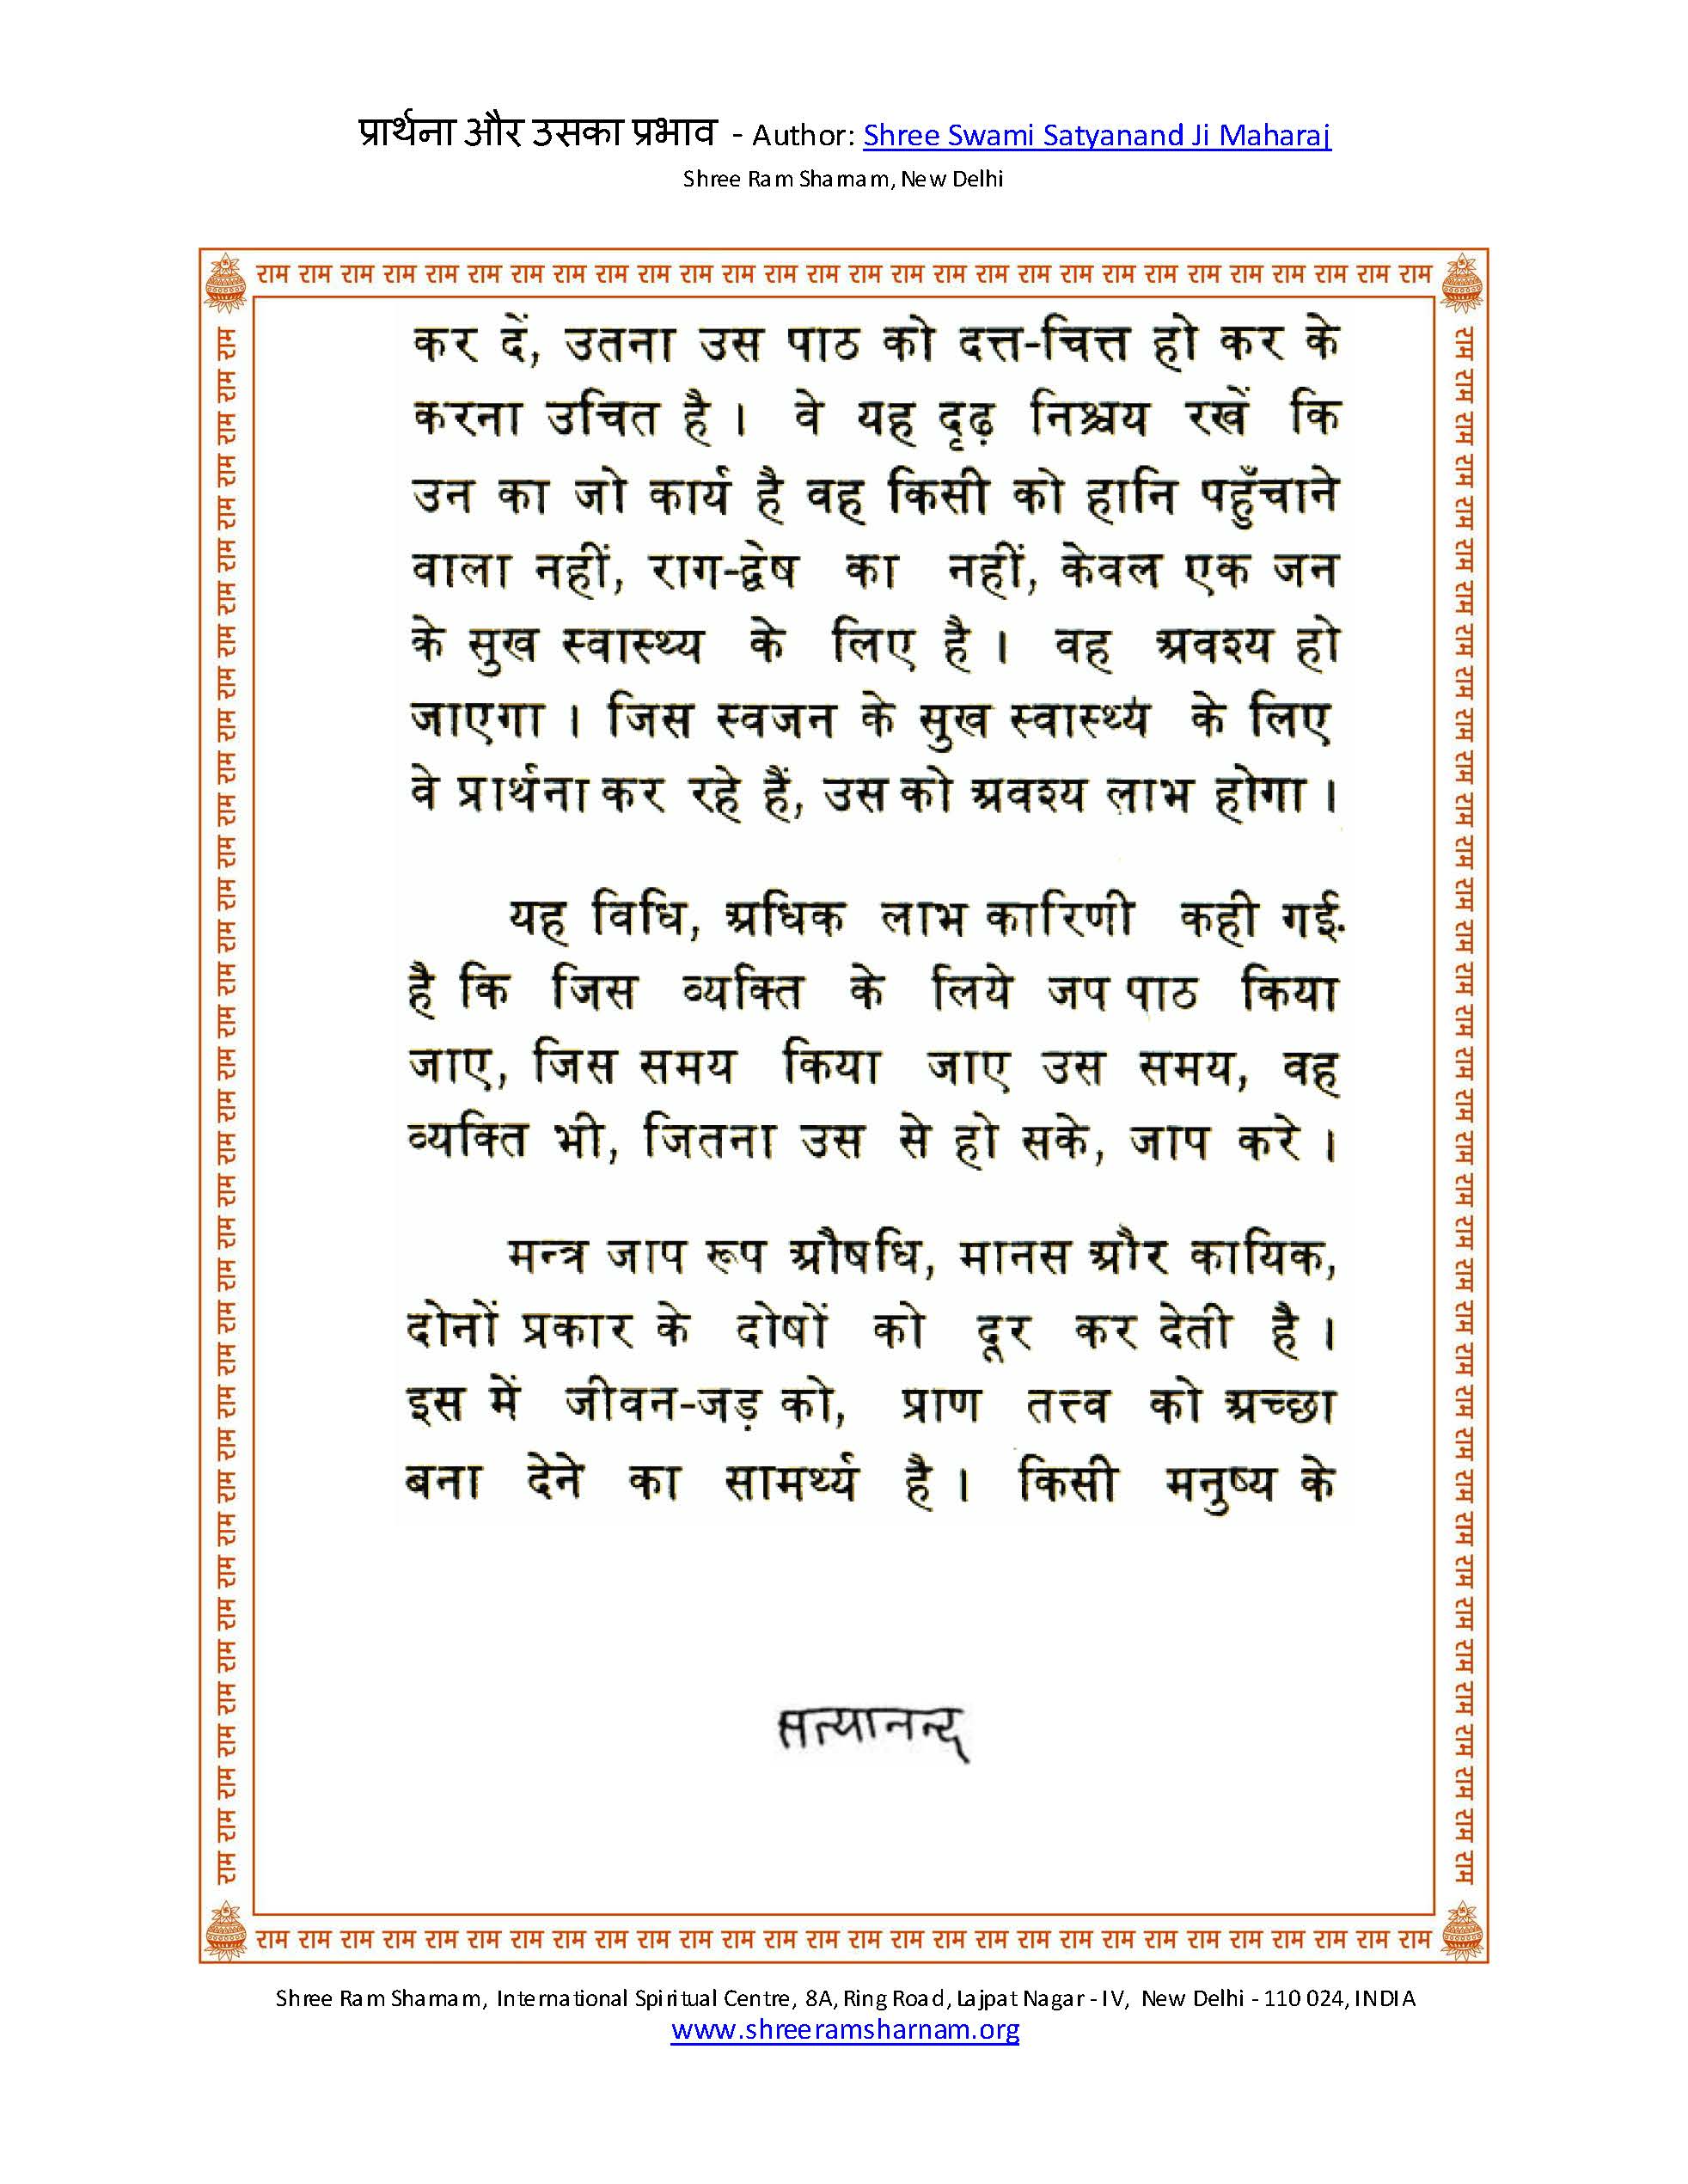 प्रार्थना और उसका प्रभाव - Author: Shree Swami Satyanand Ji Maharaj
Shree Ram Sharnam, New Delhi
राम राम राम राम राम राम राम राम राम राम राम राम राम राम राम राम राम राम राम राम राम राम राम राम राम राम राम राम
कर दें, उतना उस पाठ को दत्त-चित्त हो कर के
करना उचित है । वे यह दृढ़ निश्चय रखें कि
उन का जो कार्य है वह किसी को हानि पहुँचाने
वाला नहीं, राग-द्वेष का नहीं, केवल एक जन
के सुख स्वास्थ्य के लिए है । वह अवश्य हो
जाएगा । जिस स्वजन के सुख स्वास्थ्य के लिए
वे प्रार्थना कर रहे हैं, उस को अवश्य लाभ होगा ।
यह विधि, अधिक लाभ कारिणी कही गई
है कि जिस व्यक्ति के लिये जप पाठ किया
जाए, जिस समय किया जाए उस समय, वह
व्यक्ति भी, जितना उस से हो सके, जाप करे ।
मन्त्र जाप रूप औषधि, मानस और कायिक,
दोनों प्रकार के दोषों को दूर कर देती है ।
इस में जीवन-जड़ को, प्राण तत्त्व को अच्छा
बना देने का सामर्थ्य है । किसी मनुष्य के
सत्यानन्द
राम राम राम राम राम राम राम राम राम राम राम राम राम राम राम राम राम राम राम राम राम राम राम राम राम राम राम राम
राम राम राम राम राम राम राम राम राम राम राम राम राम राम राम राम राम राम राम राम राम राम राम राम राम राम राम राम राम राम राम राम राम राम राम राम राम
राम राम राम राम राम राम राम राम राम राम राम राम राम राम राम राम राम राम राम राम राम राम राम राम राम राम राम राम राम राम राम राम राम राम राम राम राम
Shree Ram Sharnam, International Spiritual Centre, 8A, Ring Road, Lajpat Nagar - IV, New Delhi - 110 024, INDIA
www.shreeramsharnam.org